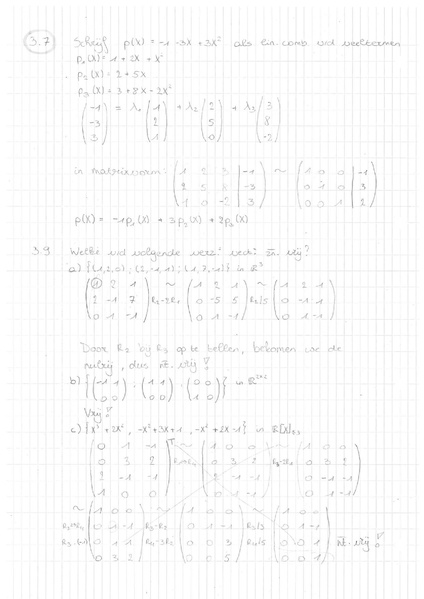 3.7 Schrijf p(X) = -1 -3X + 3X² als lin. comb. v/d veeltermen
p₁(X) = 1 + 2X + X²
p₂(X) = 2 + 5X
p₃(X) = 3 + 8X - 2X²
(-1 -3 3) = λ₁ (1 2 1) + λ₂ (2 5 0) + λ₃ (3 8 -2)
in matrixvorm: (1 2 3 | -1 ; 2 5 8 | -3 ; 1 0 -2 | 3) ~ (1 0 0 | -1 ; 0 1 0 | 3 ; 0 0 1 | 2)
p(X) = -1p₁(X) + 3p₂(X) + 2p₃(X)
3.9 Welke v/d volgende verz. vect. zn. vrij?
a) {(1,2,0) ; (2,-1,1) ; (1,7,-1)} in ℝ³
(1 2 1 ; 2 -1 7 ; 0 1 -1) ~ R₂-2R₁ (1 2 1 ; 0 -5 5 ; 0 1 -1) R₂/5 ~ (1 2 1 ; 0 -1 1 ; 0 1 -1)
Door R₂ bij R₃ op te tellen, bekomen we de
nulrij, dus nt. vrij!
b) {(-1 1 ; 0 0) ; (1 1 ; 0 0) ; (0 0 ; 1 0)} in ℝ²ˣ²
Vrij!
c) {X³ + 2X², -X² + 3X + 1, -X² + 2X - 1} in ℝ[X]≤₃
(0 1 -1 ; 0 3 2 ; 2 -1 -1 ; 1 0 0) ~ (1 0 0 ; 0 3 2 ; 2 -1 -1 ; 0 1 -1) R₃-2R₁ ~ (1 0 0 ; 0 3 2 ; 0 -1 -1 ; 0 1 -1)
~ (1 0 0 ; 0 1 -1 ; 0 1 1 ; 0 3 2) R₃-R₂ R₄-3R₂ ~ (1 0 0 ; 0 1 -1 ; 0 0 3 ; 0 0 5) R₃/3 R₄/5 ~ (1 0 0 ; 0 1 -1 ; 0 0 1 ; 0 0 1) nt. vrij!